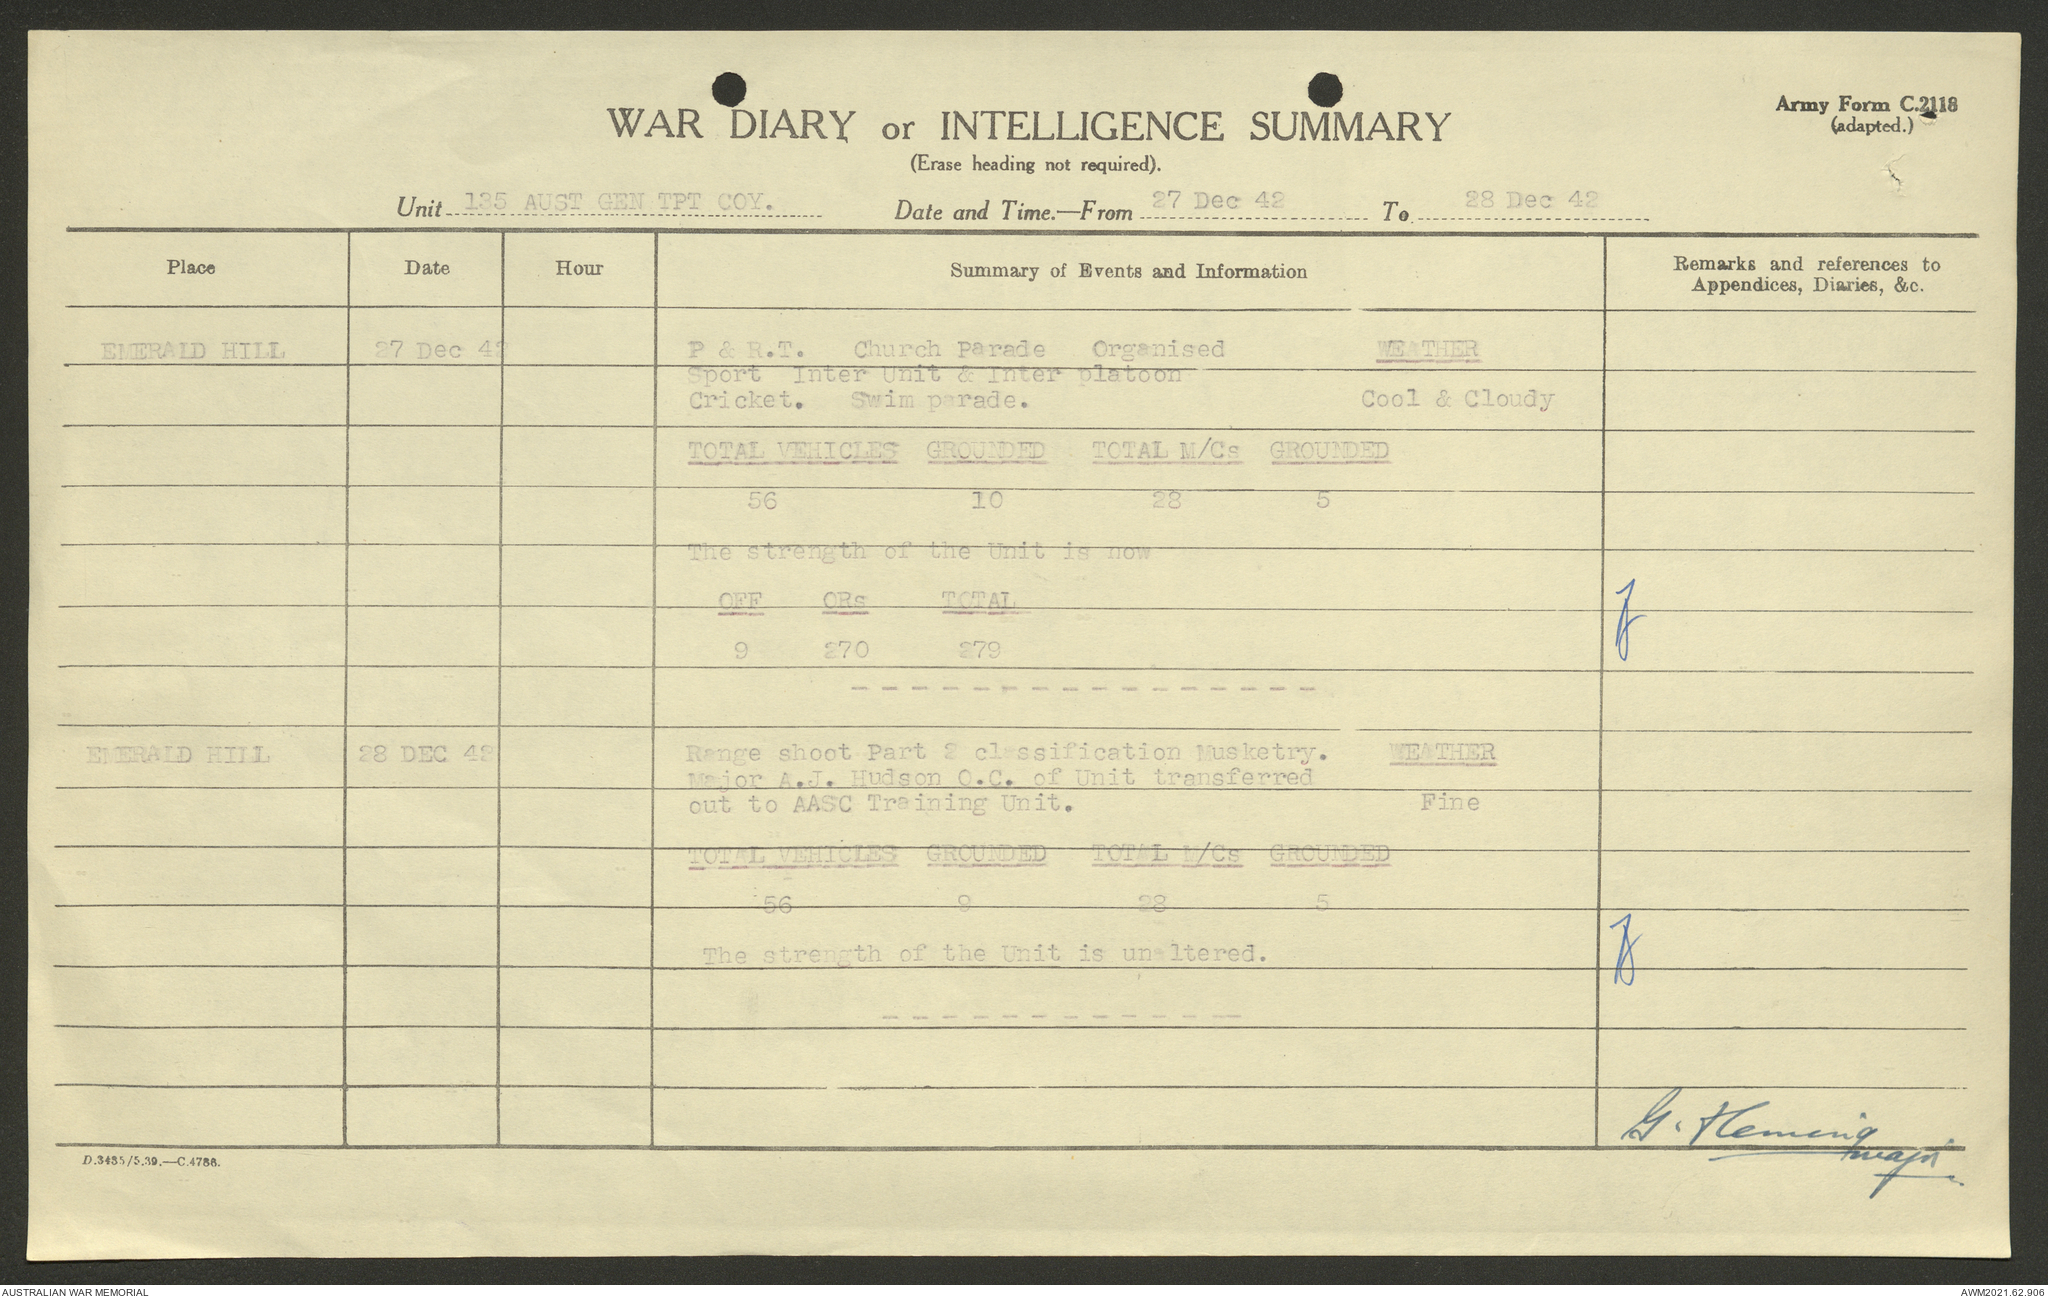 WAR DIARY or INTELLIGENCE SUMMARY
(Erase heading not required).
Army Form C.2118
(adapted.)
Unit 135 AUST GEN TPT COY. Date and Time.—From 27 Dec 42 To 28 Dec 42
Place Date Hour Summary of Events and Information Remarks and references to
Appendices, Diaries, &c.
EMERALD HILL 27 Dec 42 P & R.T. Church Parade Organised WEATHER
Sport Inter Unit & Inter platoon
Cricket. Swim parade. Cool & Cloudy
TOTAL VEHICLES GROUNDED TOTAL M/Cs GROUNDED
56 10 28 5
The strength of the Unit is now
OFF ORs TOTAL
9 270 279
EMERALD HILL 28 DEC 42 Range shoot Part 2 classification Musketry. WEATHER
Major A.J. Hudson O.C. of Unit transferred
out to AASC Training Unit. Fine
TOTAL VEHICLES GROUNDED TOTAL M/Cs GROUNDED
56 9 28 5
The strength of the Unit is unaltered.
G. Fleming
Major
D.3485/5.39.—C.4786.
AUSTRALIAN WAR MEMORIAL
AWM2021.62.906